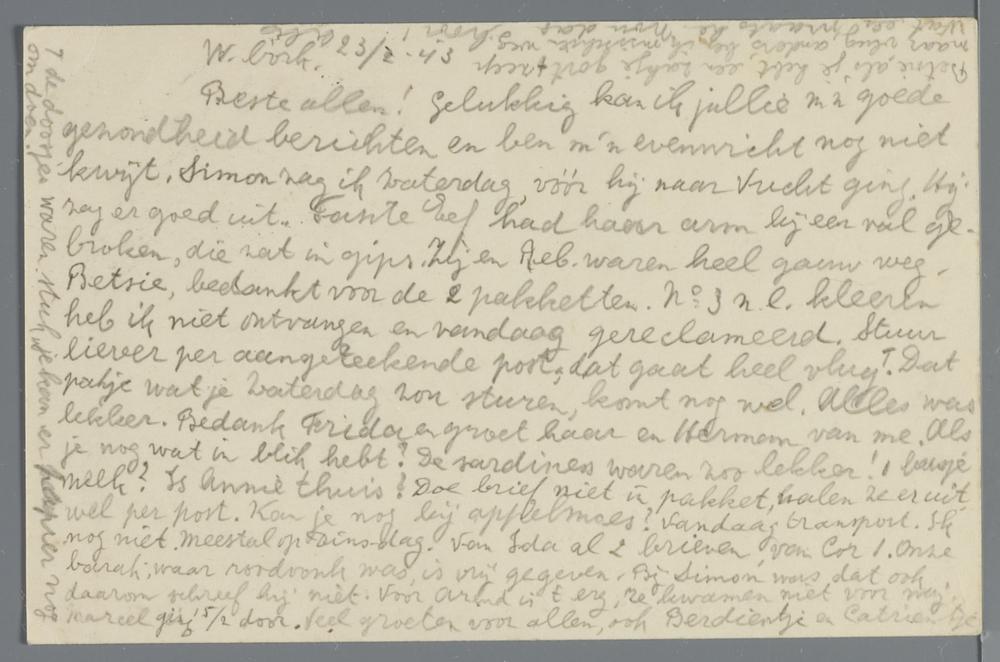 W. börk. 23/2 - 43
Beste allen! Gelukkig kan ik jullie m'n goede
gezondheid berichten en ben m'n evenwicht nog niet
kwijt. Simon zag ik Zaterdag, vóór hij naar Vucht ging. Hij
zag er goed uit. Tante Eef had haar arm bij een val ge-
broken, die zat in gips. Zij en Reb. waren heel gauw weg.
Betsie, bedankt voor de 2 pakketten. No 3 n.l. kleeren
heb ik niet ontvangen en vandaag gereclameerd. Stuur
liever per aangeteekende post, dat gaat heel vlug! Dat
pakje wat je Zaterdag zou sturen, komt nog wel. Alles was
lekker. Bedank Frida en groet haar en Herman van me. Als
je nog wat in blik hebt? De sardines waren zoo lekker! 1 busje
melk? Is Annie thuis? Doe brief niet in pakket, halen ze er uit,
wel per post. Kan je nog bij appelmoes? Vandaag transport. Ik
nog niet. Meestal op Dinsdag. Van Ida al 2 brieven, van Cor 1. Onze
barak, waar roodvonk was, is vrij gegeven. Bij Simon was dat ook
daarom schreef hij niet. Voor Arend is 't erg, ze kwamen niet voor mij.
Marcel ging 15/2 door. Veel groeten voor allen, ook Berdientje en Catrientje
7 de doosjes waren stuk, je kan er papier nog
om doen.
Betsie, als je hebt, een zakje gort
maar vlug, anders ben ik misschien weg hoor!
Wat een